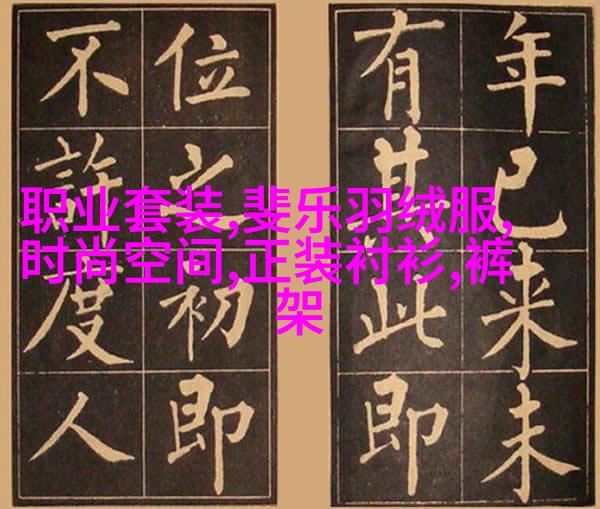 年已来未
有此即
位之初即
不許度人
职业套装,斐乐羽绒服,
时尚空间,正装衬衫,裤
架